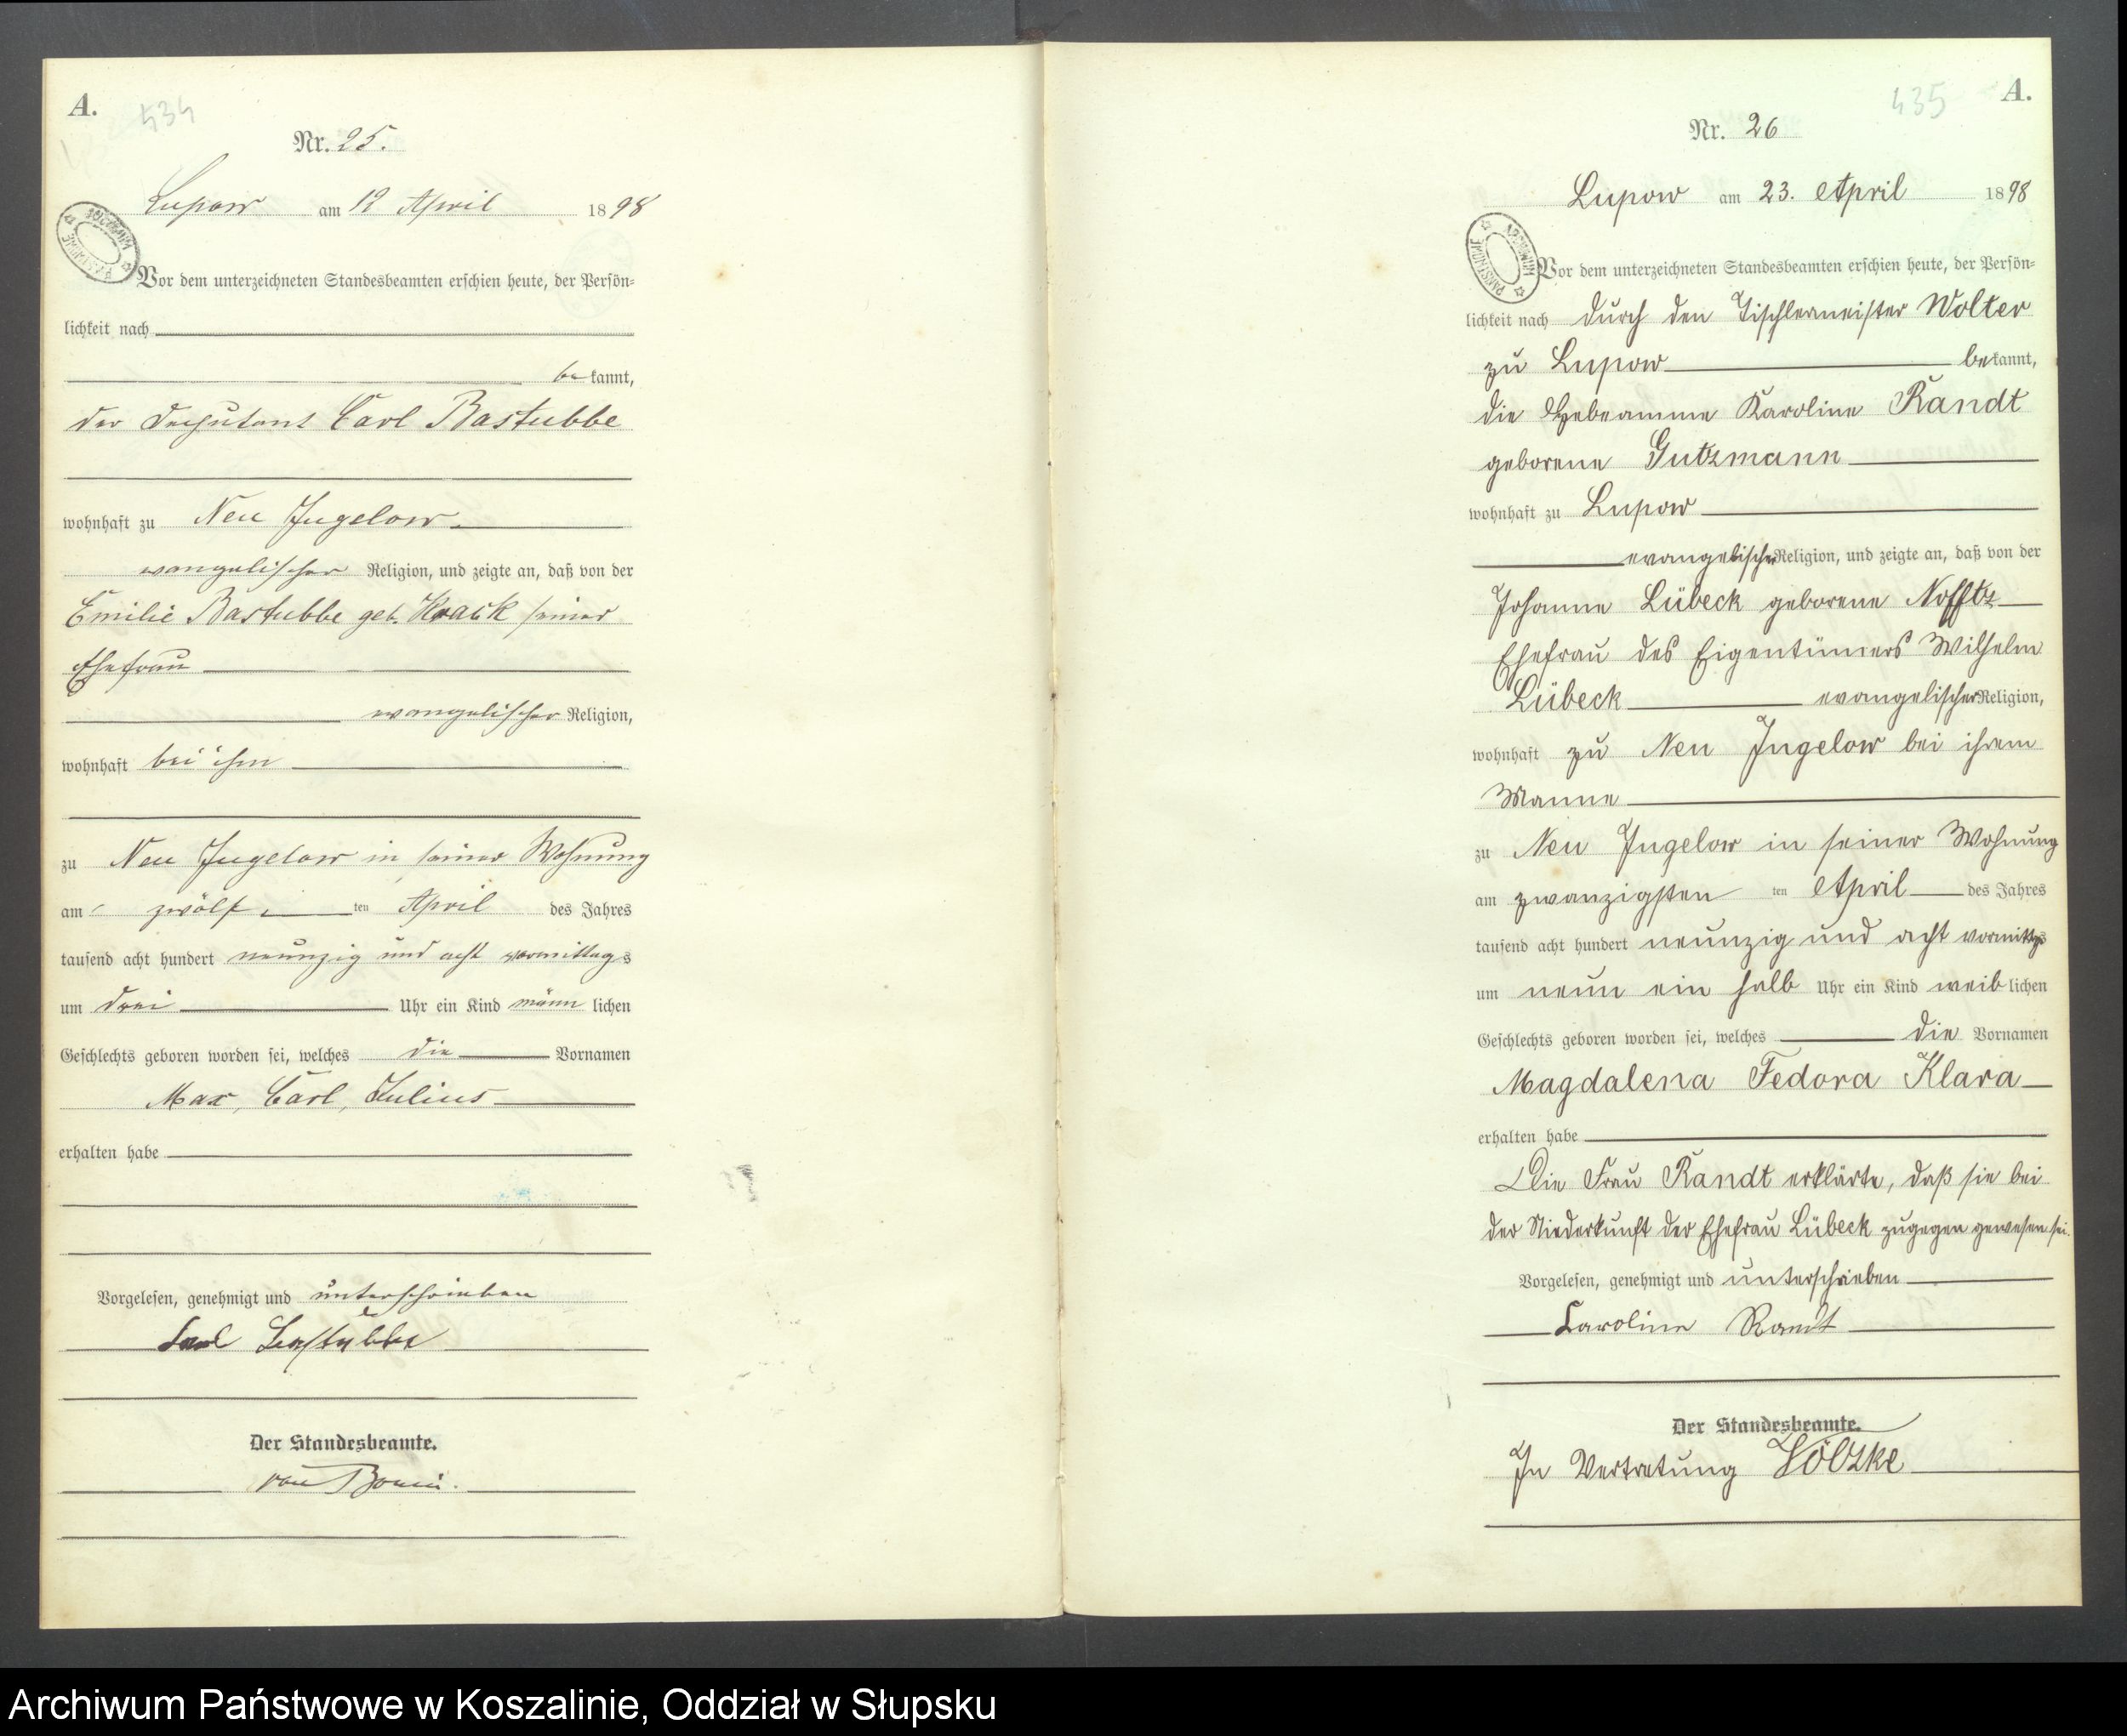 A.
434
Nr. 25.
Lupow am 12 April 1898
ARCHIWUM PAŃSTWOWE
Vor dem unterzeichneten Standesbeamten erschien heute, der Persön-
lichkeit nach
be kannt,
der Deputant Carl Bastubbe
wohnhaft zu Neu Jugelow
evangelischer Religion, und zeigte an, daß von der
Emilie Bastubbe geb. Kvack seiner
Ehefrau
evangelischer Religion,
wohnhaft bei ihm
zu Neu Jugelow in seiner Wohnung
am zwölf ten April des Jahres
tausend acht hundert neunzig und acht vormittags
um drei Uhr ein Kind männ lichen
Geschlechts geboren worden sei, welches die Vornamen
Max, Carl, Julius
erhalten habe
Vorgelesen, genehmigt und unterschrieben
Carl Bastubbe
Der Standesbeamte.
von Bonin.
A.
435
Nr. 26
Lupow am 23. April 1898
ARCHIWUM PAŃSTWOWE
Vor dem unterzeichneten Standesbeamten erschien heute, der Persön-
lichkeit nach durch den Tischlermeister Wolter
zu Lupow bekannt,
die Hebeamme Karoline Randt
geborene Gutzmann
wohnhaft zu Lupow
evangelischer Religion, und zeigte an, daß von der
Johanne Lübeck geborene Nofftz
Ehefrau des Eigentümers Wilhelm
Lübeck evangelischer Religion,
wohnhaft zu Neu Jugelow bei ihrem
Manne
zu Neu Jugelow in seiner Wohnung
am zwanzigsten ten April des Jahres
tausend acht hundert neunzig und acht vormittgs
um neun ein halb Uhr ein Kind weib lichen
Geschlechts geboren worden sei, welches die Vornamen
Magdalena Fedora Klara
erhalten habe
Die Frau Randt erklärte, daß sie bei
der Niederkunft der Ehefrau Lübeck zugegen gewesen sei.
Vorgelesen, genehmigt und unterschrieben
Caroline Randt
Der Standesbeamte.
In Vertretung Völzke
Archiwum Państwowe w Koszalinie, Oddział w Słupsku